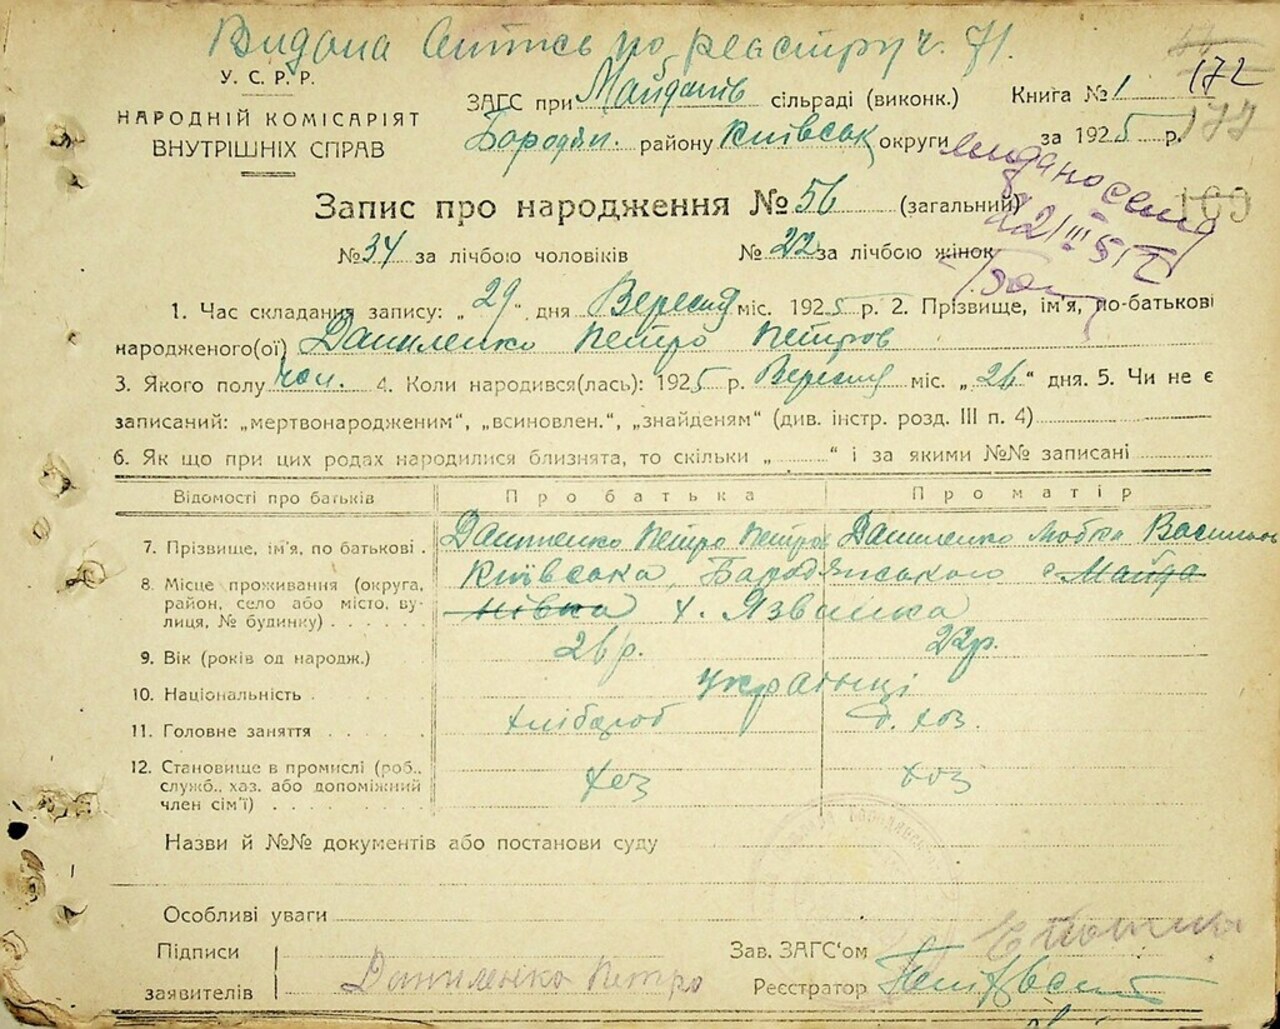 Видана по реєстру ч. 71.
172
У. С. Р. Р.
НАРОДНІЙ КОМІСАРІЯТ
ВНУТРІШНІХ СПРАВ
ЗАГС при Майданів сільраді (виконк.) Книга № 1
177
Бородян. району Київськ округи за 1925 р.
169
Запис про народження № 56 (загальний)
22/III 51
№ 34 за лічбою чоловіків № 22 за лічбою жінок
1. Час складання запису: „29“ дня Вересня міс. 1925 р. 2. Прізвище, ім'я, по-батькові
народженого(ої) Даниленко Петро Петров
3. Якого полу чол. 4. Коли народився(лась): 1925 р. Вересня міс. „26“ дня. 5. Чи не є
записаний: „мертвонародженим“, „всиновлен.“, „знайденям“ (див. інстр. розд. III п. 4)
6. Як що при цих родах народилися близнята, то скільки „ “ і за якими №№ записані
Відомості про батьків Про батька Про матір
7. Прізвище, ім'я, по батькові . Даниленко Петро Петров Даниленко Любка Васильов
8. Місце проживання (округа, Київська, Бородянського с. Майда
район, село або місто, ву- нівка х. Язвинка
лиця, № будинку)
9. Вік (років од народж.) 26 р. 22 р.
10. Національність Українці
11. Головне заняття хлібороб д. хоз.
12. Становище в промислі (роб., хоз хоз
служб., хаз. або допоміжний
член сім'ї)
Назви й №№ документів або постанови суду
Особливі уваги
Підписи
заявителів Даниленко Петро
Зав. ЗАГС‘ом
Реєстратор